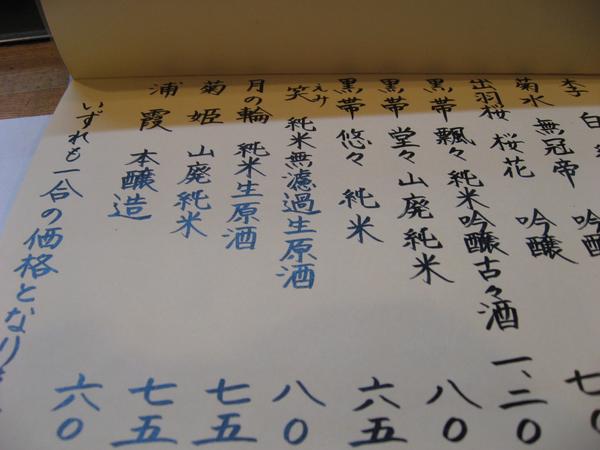 李白
菊水 無冠帝 吟醸
出羽桜 桜花 吟醸 七〇
黒帯 飄々 純米吟醸古々酒 一、二〇
黒帯 堂々 山廃純米 八〇
黒帯 悠々 純米 六五
笑 えみ 純米無濾過生原酒 八〇
月の輪 純米生原酒 七五
菊姫 山廃純米 七五
浦霞 本醸造 六〇
いずれも一合の価格となりま